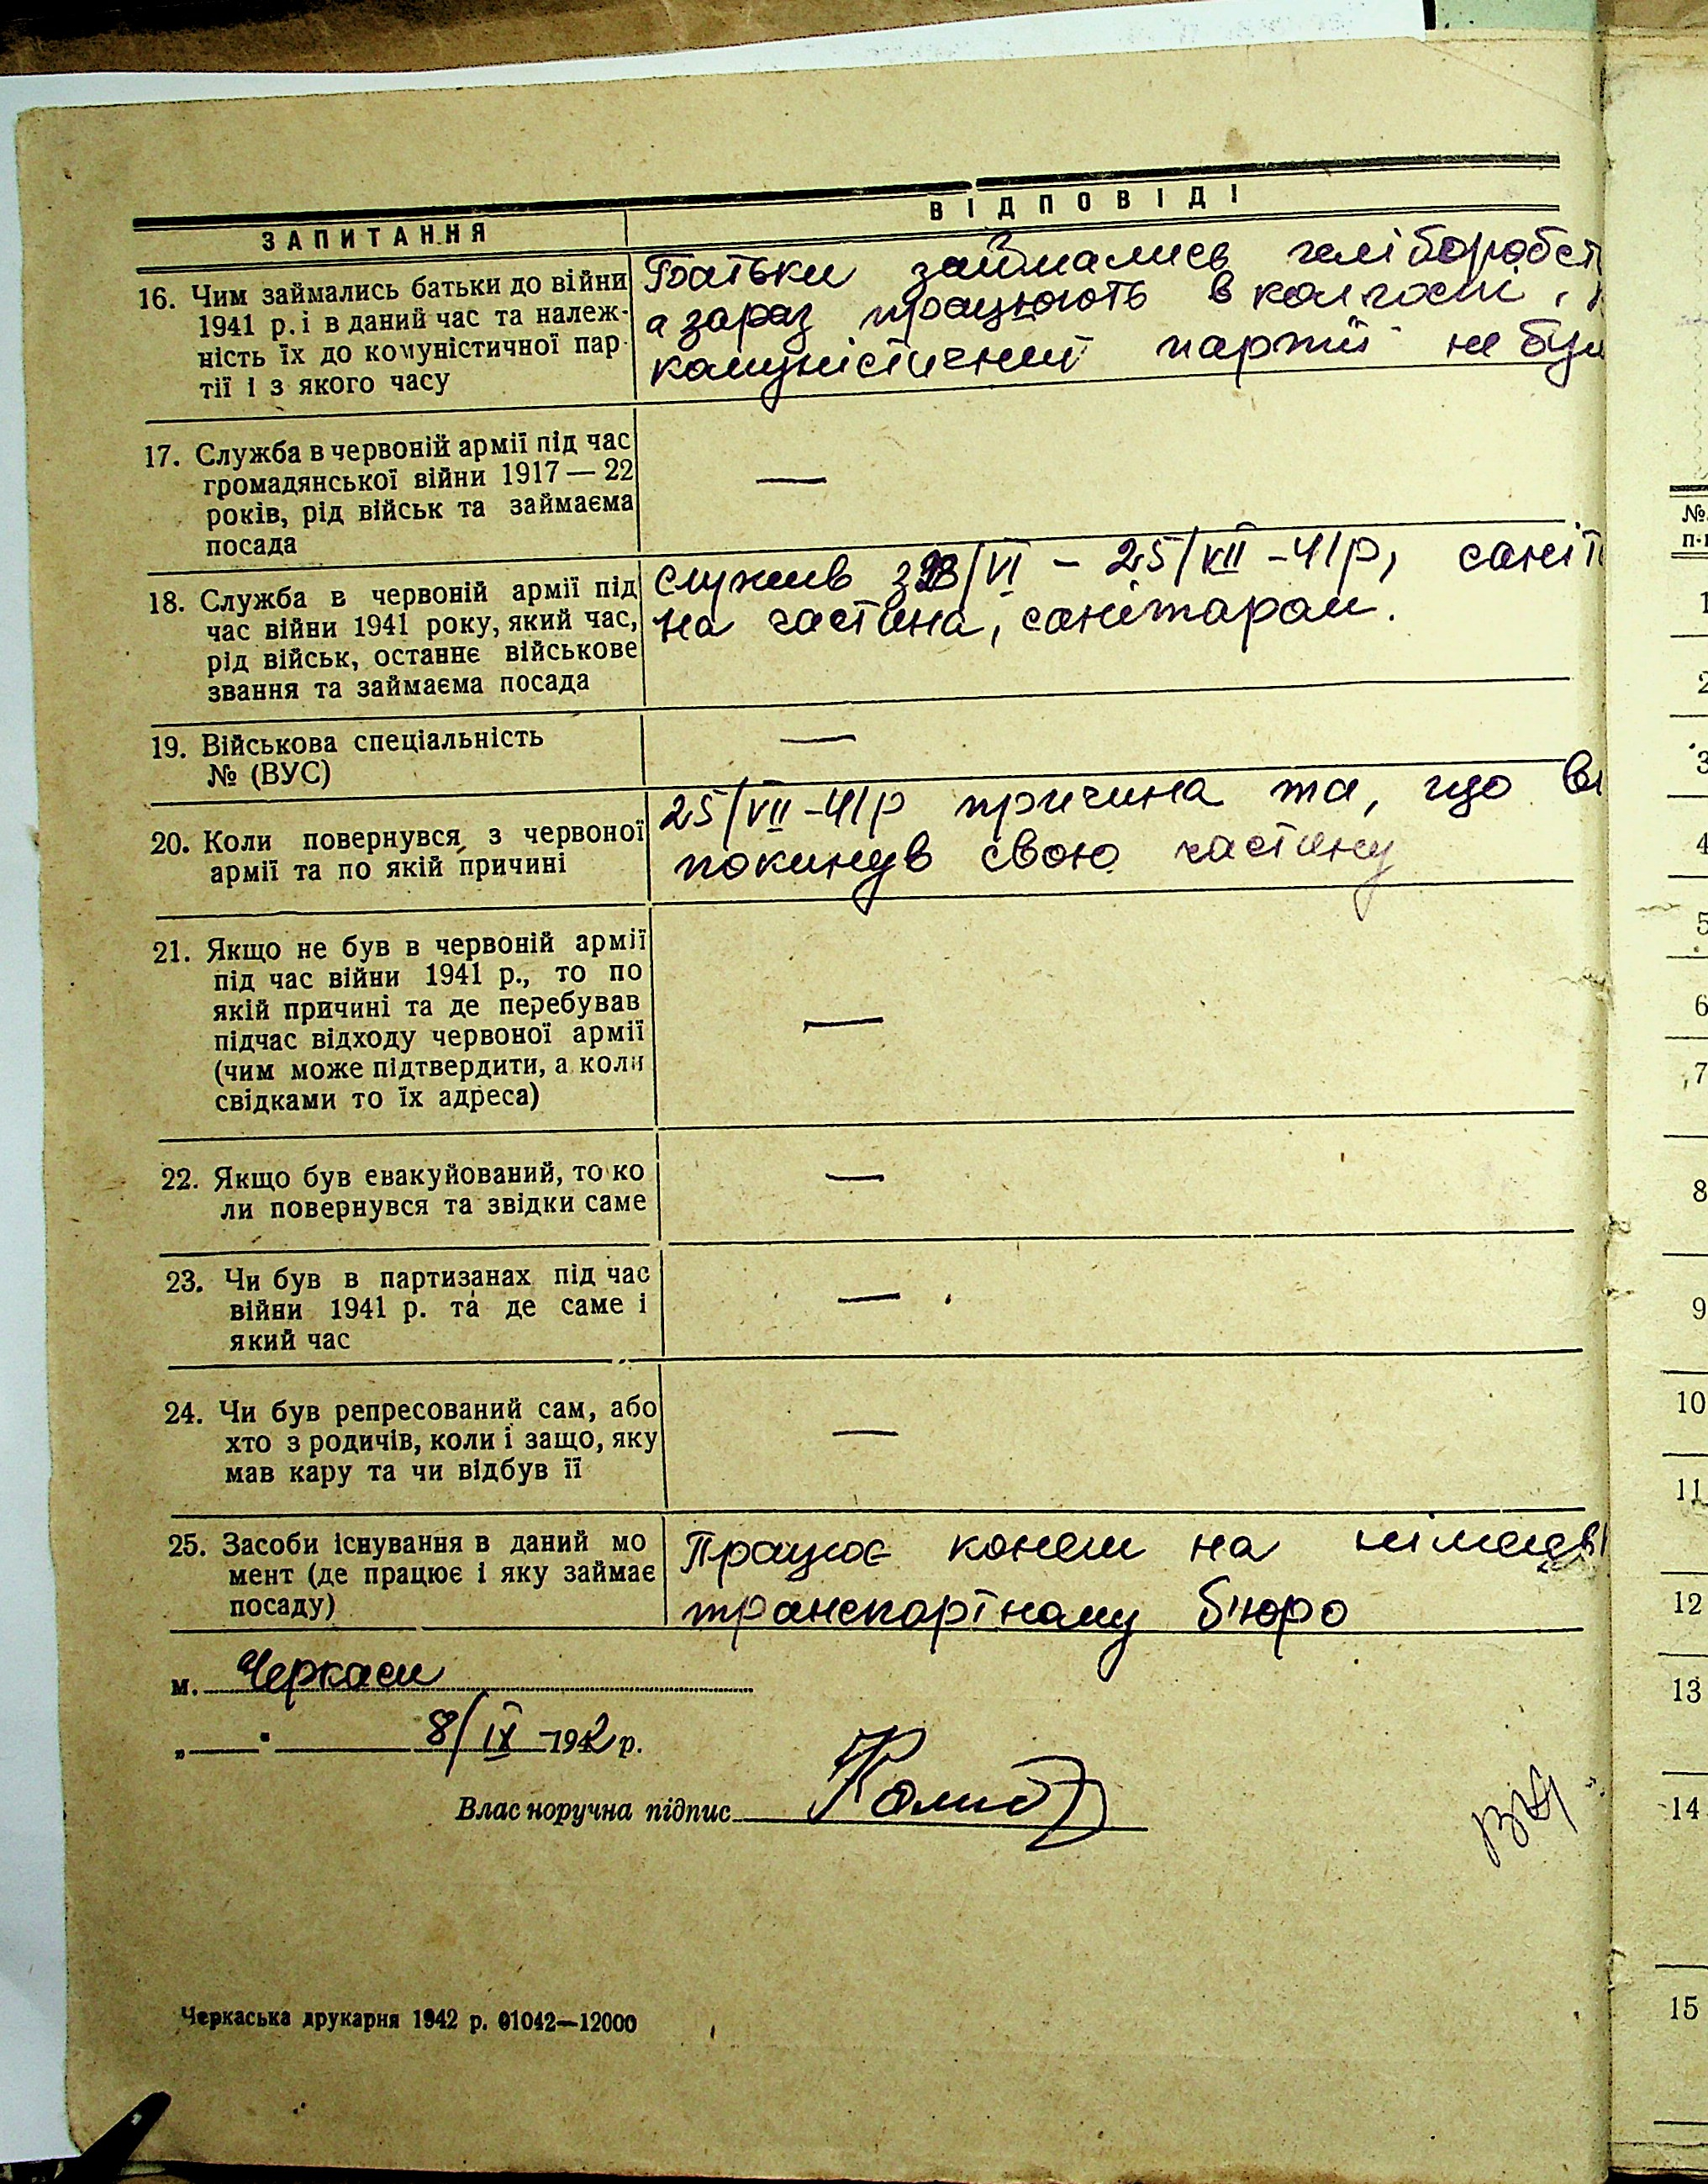 ЗАПИТАННЯ
ВІДПОВІДІ
16. Чим займались батьки до війни
1941 р. і в даний час та належ-
ність їх до комуністичної пар-
тії і з якого часу
Батьки займались хліборобст
а зараз працюють в колгоспі,
комуністичний партії не бул
17. Служба в червоній армії під час
громадянської війни 1917 — 22
років, рід військ та займаєма
посада
—
18. Служба в червоній армії під
час війни 1941 року, який час,
рід військ, останнє військове
звання та займаєма посада
служив з 23/VI – 25/VII –41р, саніт
на частина, санітаром.
19. Військова спеціальність
№ (ВУС)
—
20. Коли повернувся з червоної
армії та по якій причині
25/VII –41р причина та, що ві
покинув свою частину
21. Якщо не був в червоній армії
під час війни 1941 р., то по
якій причині та де перебував
підчас відходу червоної армії
(чим може підтвердити, а коли
свідками то їх адреса)
—
22. Якщо був евакуйований, то ко
ли повернувся та звідки саме
—
23. Чи був в партизанах під час
війни 1941 р. та де саме і
який час
—
24. Чи був репресований сам, або
хто з родичів, коли і защо, яку
мав кару та чи відбув її
—
25. Засоби існування в даний мо
мент (де працює і яку займає
посаду)
Працює конем на німецьк
транспортному б'юро
м. Черкаси
„ " 8/IX –1942 р.
Власноручна підпис
Черкаська друкарня 1942 р. 01042—12000
№
п-п
1
2
3
4
5
6
7
8
9
10
11
12
13
14
15